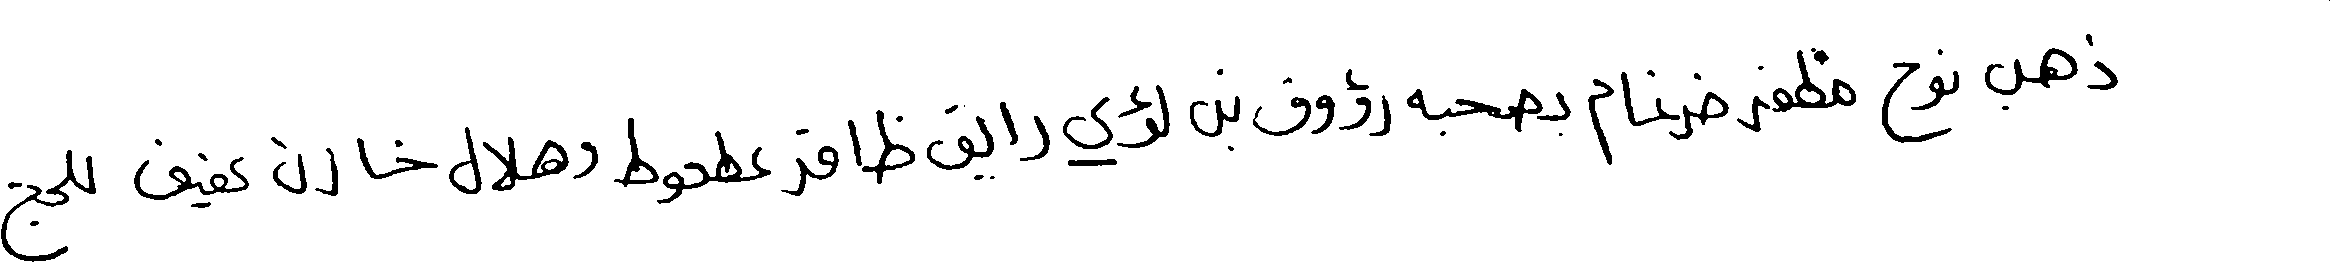 ذهب نوح مظفر ضرغام بصحبه رؤوف بن لؤي رايق ظافر عطعوط وهلال خازن عفيف للحج